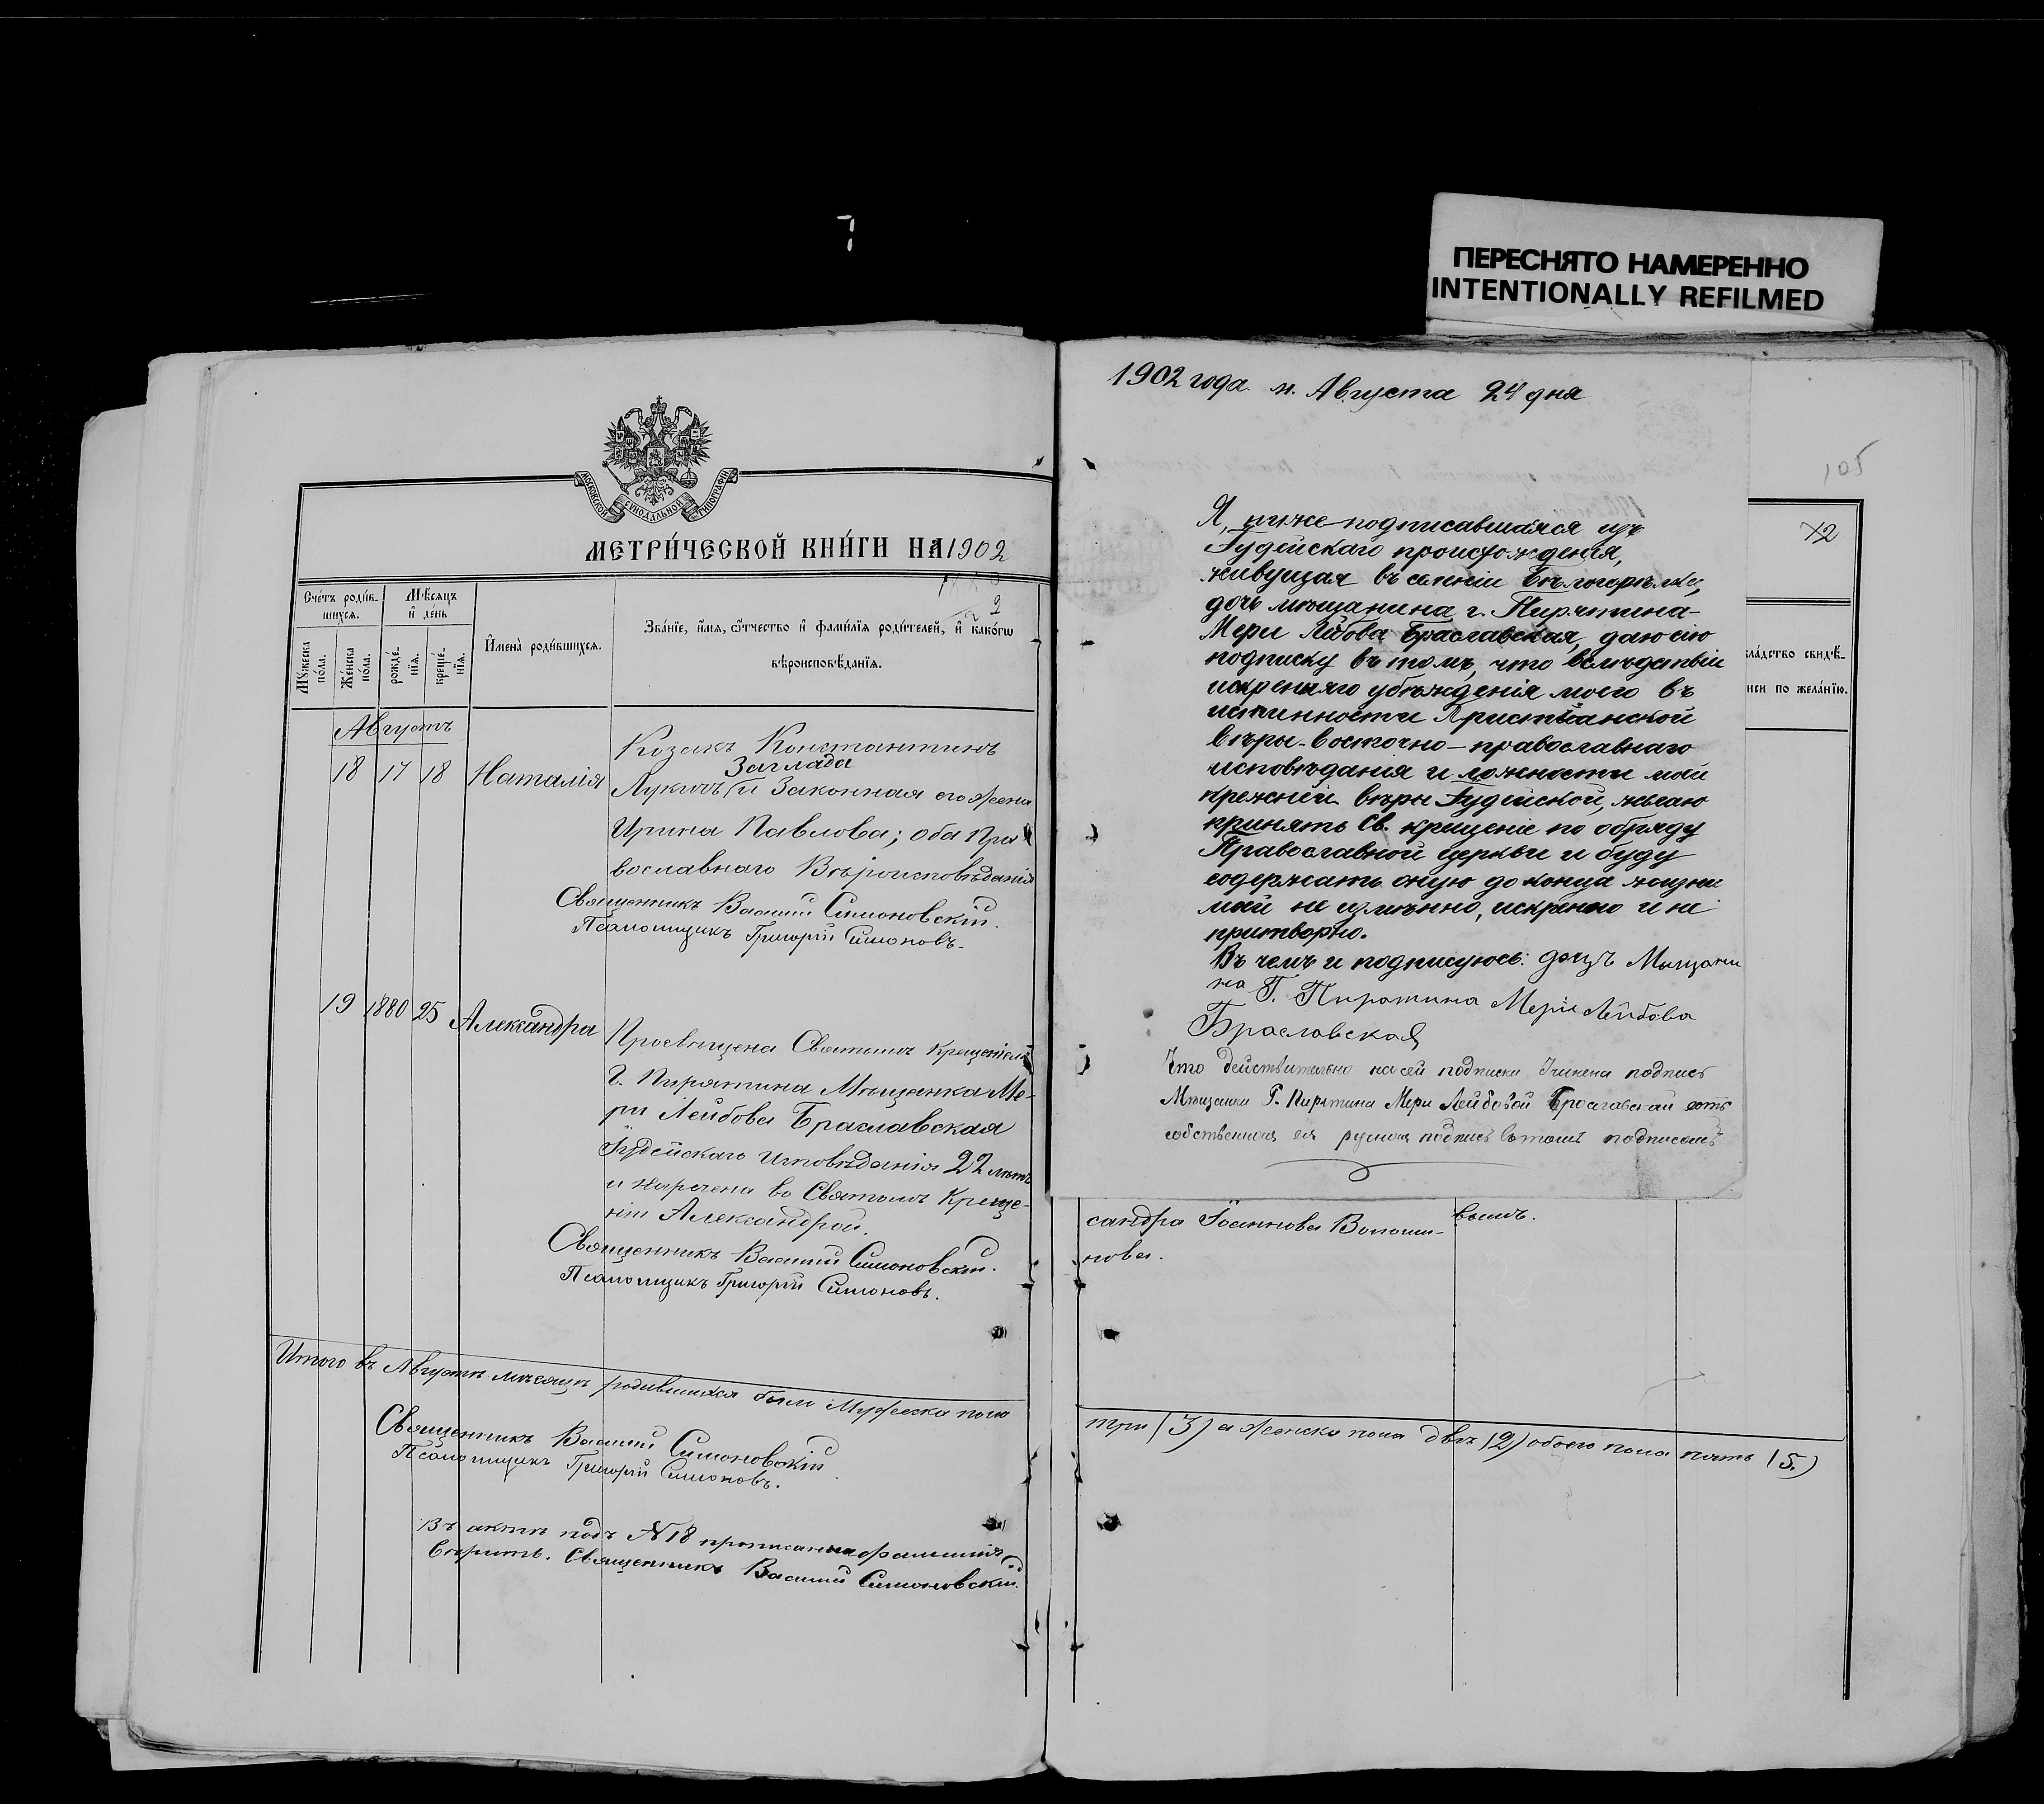 ПЕРЕСНЯТО НАМЕРЕННО
INTENTIONALLY REFILMED
МОСКОВСКОЙ СѴНОДАЛЬНОЙ ТИПОГРАФІИ
МЕТРИ́ЧЕСКОЙ КНИ́ГИ НА 1902
Сче́тъ роди́в-
шихся.
Мѣ́сяцъ
и҆ де́нь
Мꙋ́жеска
по́ла.
Же́нска
по́ла.
рожде́-
нїѧ.
креще́-
нїѧ.
И҆мена̀ роди́вшихсѧ.
Зва́нїе, и҆́мѧ, ѻ҆́тчество и҆ фами́лїѧ роди́телей, и҆ како́гѡ
вѣроисповѣ́данїѧ.
Августъ
18 17 18 Наталія
Козакъ Константинъ
Заглада
Лукичъ (и Законная его жена
Ирина Павлова; оба Пра
вославнаго Вѣроисповѣданія
Священникъ Василій Симоновскій.
Псаломщикъ Григорій Симоновъ.
19 1880 25 Александра
Просвящена Святымъ Крещеніемъ
Г. Пирятина Мѣщанка Ме-
ри Лейбова Браславская
Іудейскаго Исповѣданія 22 лѣтъ
и наречена во Святомъ Креще-
ніи Александрой.
Священникъ Василій Симоновскій.
Псаломщикъ Григорій Симоновъ.
Итого въ Августѣ мѣсяцѣ родившихся было Мужеска пола
Священникъ Василій Симоновскій
Псаломщикъ Григорій Симоновъ.
Въ актѣ подъ № 18 прописанна фамилія
вѣрить. Священникъ Василій Симоновскій.
1902 года м. Августа 24 дня
Я, ниже-подписавшаяся изъ
Іудейскаго происхожденія,
живущая въ селеніи Бѣлогорѣлкѣ,
дочь мѣщанина г. Пирятина-
Мери Лейбова Браславская, даю сію
подписку въ томъ, что вслѣдствіи
искреняго убѣжденія моего въ
истинности Христіанской
вѣры-восточно-православнаго
исповѣданія и ложности моей
прежней вѣры Іудейской, желаю
принять Св. крещеніе по обряду
Православной церкви и буду
содержать оную до конца жизни
моей не измѣнно, искренно и не
притворно.
Въ чемъ и подписуюсь: дочь Мещани
на Г. Пирятина Мери Лейбова
Браславская
Что действительно на сей подписки Учинена подпись
Мѣщанки Г. Пирятина Мери Лейбовой Браславской есть
собственная ея ручная подпись въ томъ подписомъ
105
72
кла́дство свидѣ́-
писи по жела́нїю.
сандра Іоаннова Волоши-
нова.
вымъ.
три (3) а Женска пола двѣ (2) обоего пола пять (5.)